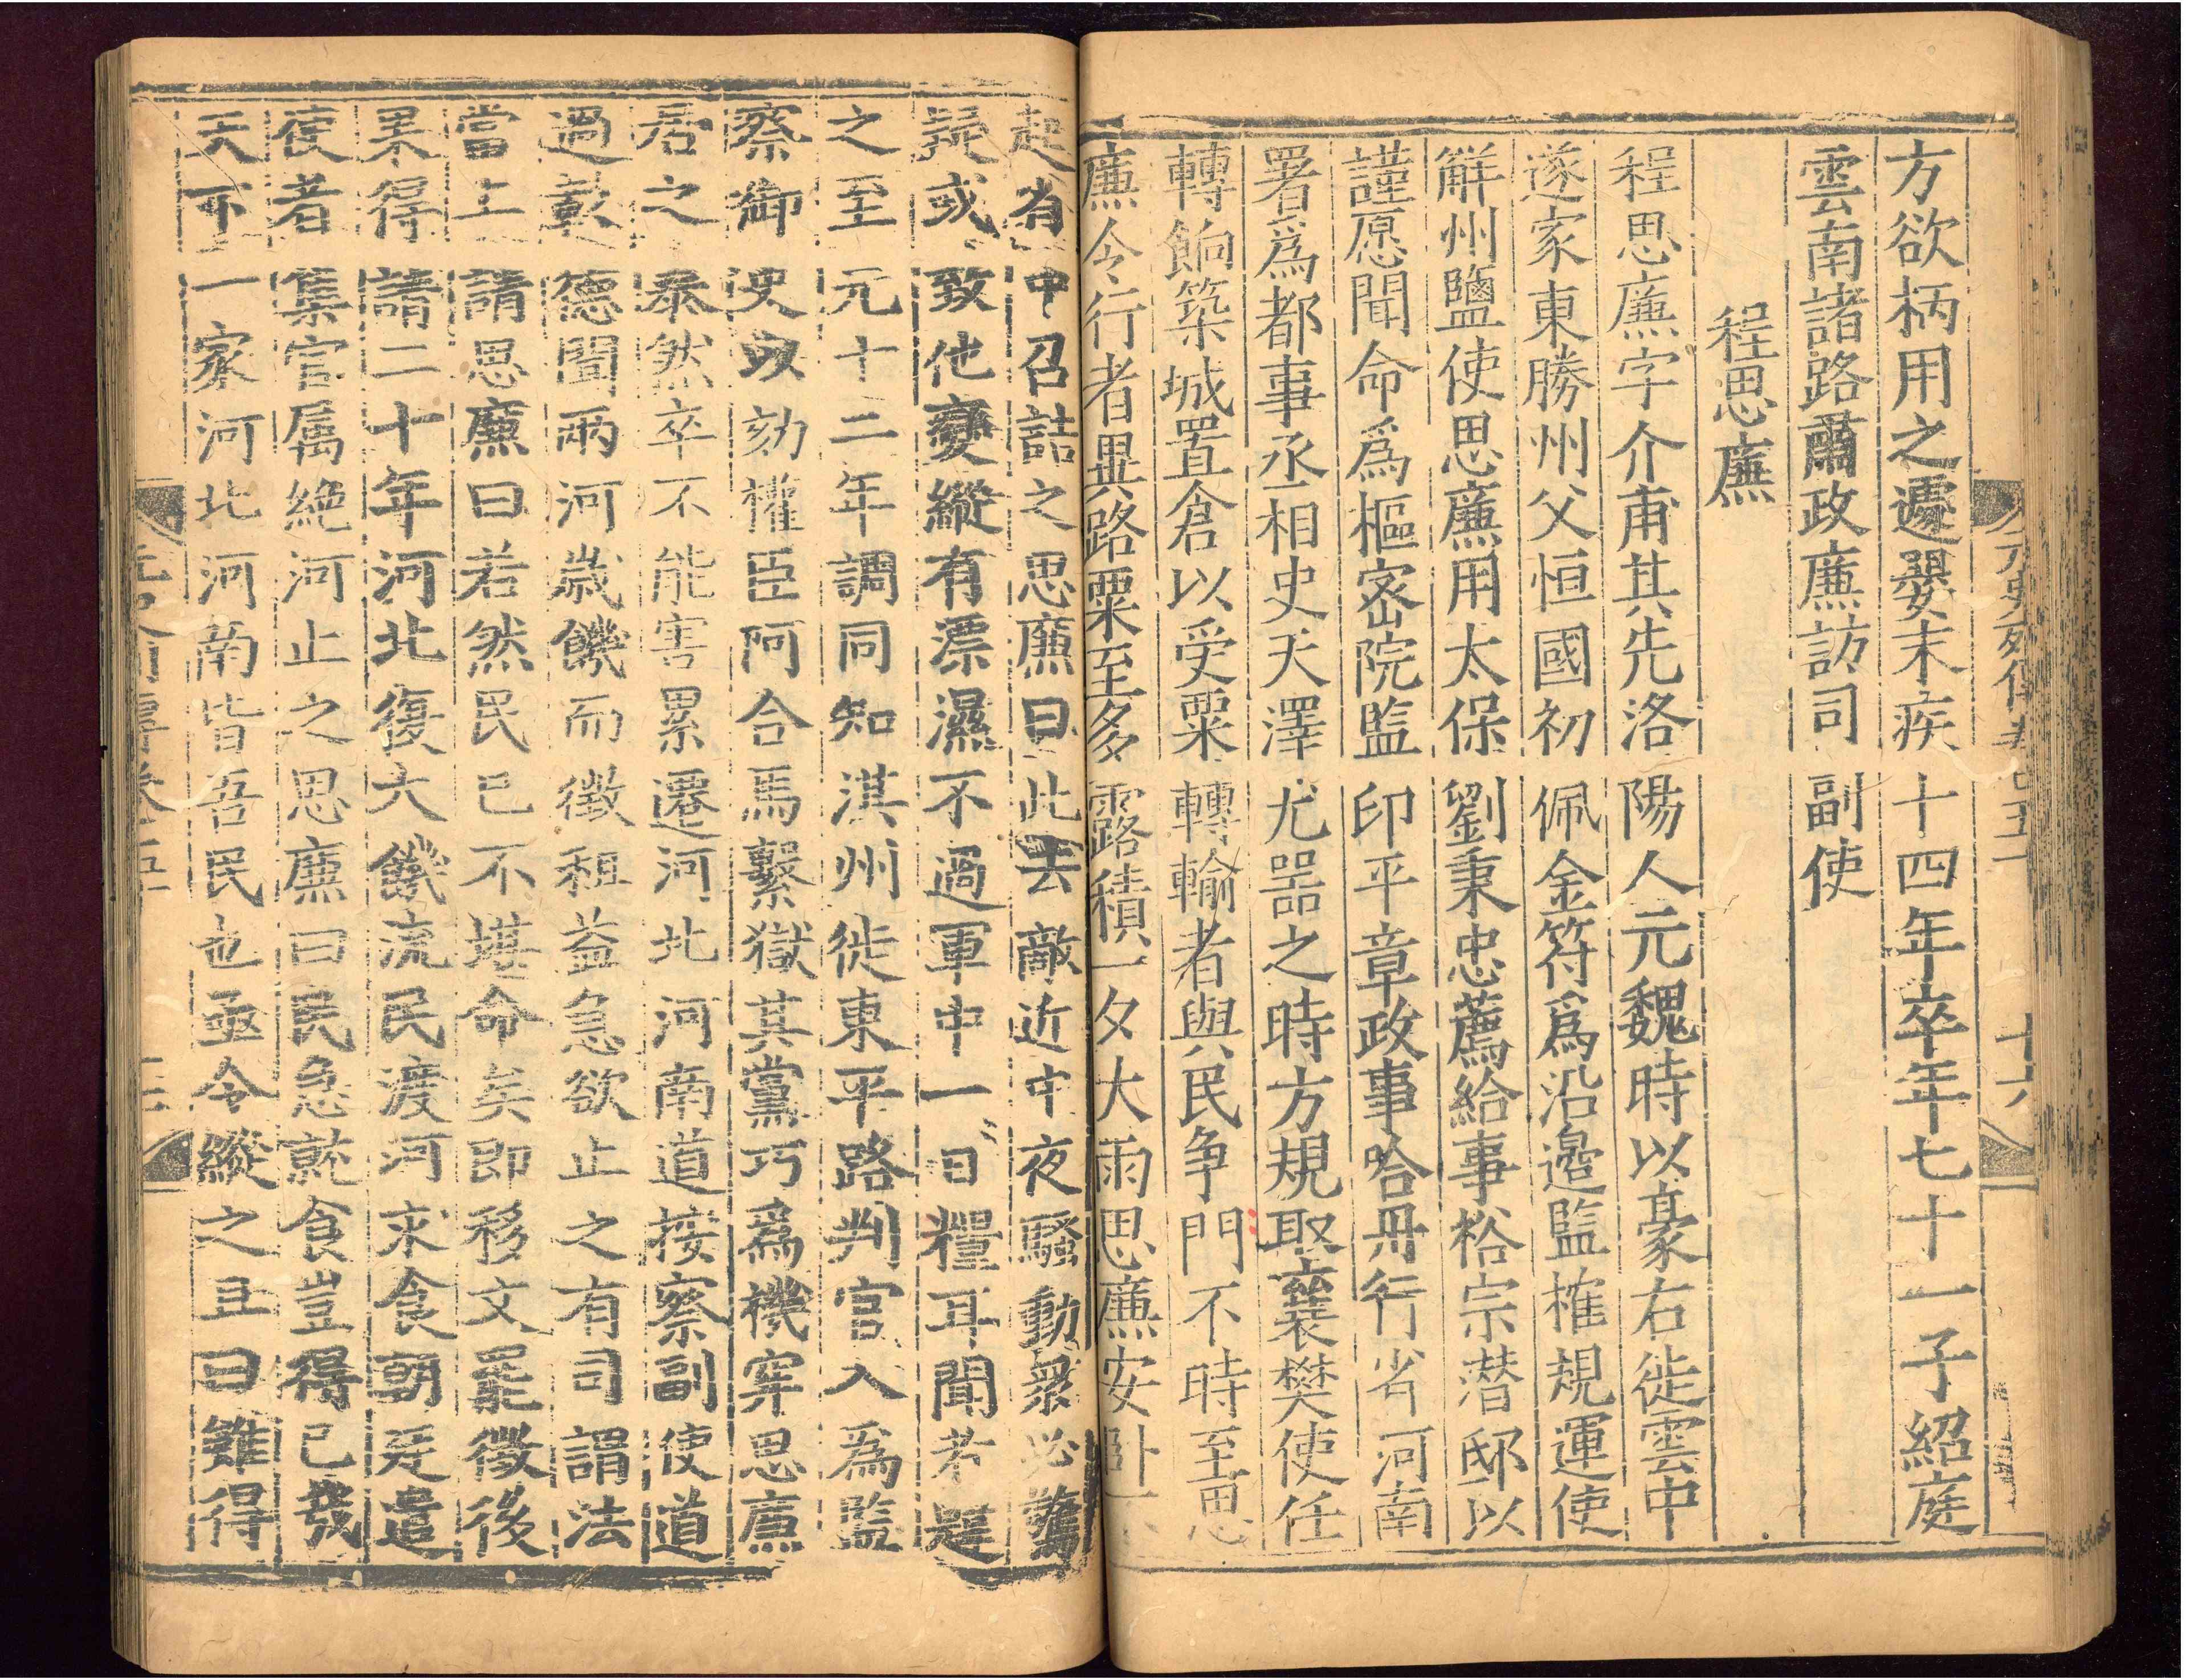 方欲柄用之遽嬰末疾十四年卒年七十一子紹庭
雲南諸路肅政廉訪司副使
程思廉
程思廉字介甫其先洛陽人元魏時以豪右徙雲中
遂家東勝州父恒國初佩金符爲沿邊監榷規運使
解州鹽使思廉用太保劉秉忠薦給事裕宗潛邸以
謹愿聞命爲樞密院監印平章政事哈丹行省河南
署爲都事丞相史天澤尤器之時方規取襄樊使任
轉餉築城置倉以受粟轉輸者與民争門不時至思
廉令行者異路粟至多露積一夕大雨思廉安臥不
起省中召詰之思廉曰此去敵近中夜騷動衆必驚
疑或致他變縱有漂濕不過軍中一日糧耳聞者韙
之至元十二年調同知淇州徙東平路判官入爲監
察御史以劾權臣阿合馬繫獄其黨巧爲機穽思廉
居之泰然卒不能害累遷河北河南道按察副使道
過彰德聞兩河歲饑而徵租益急欲止之有司謂法
當上請思廉曰若然民已不堪命矣即移文罷徵後
果得請二十年河北復大饑流民渡河求食朝廷遣
使者集官屬絶河止之思廉曰民急就食豈得已哉
天下一家河北河南皆吾民也亟令縱之且曰雖得
元史列傳卷五十一
十六